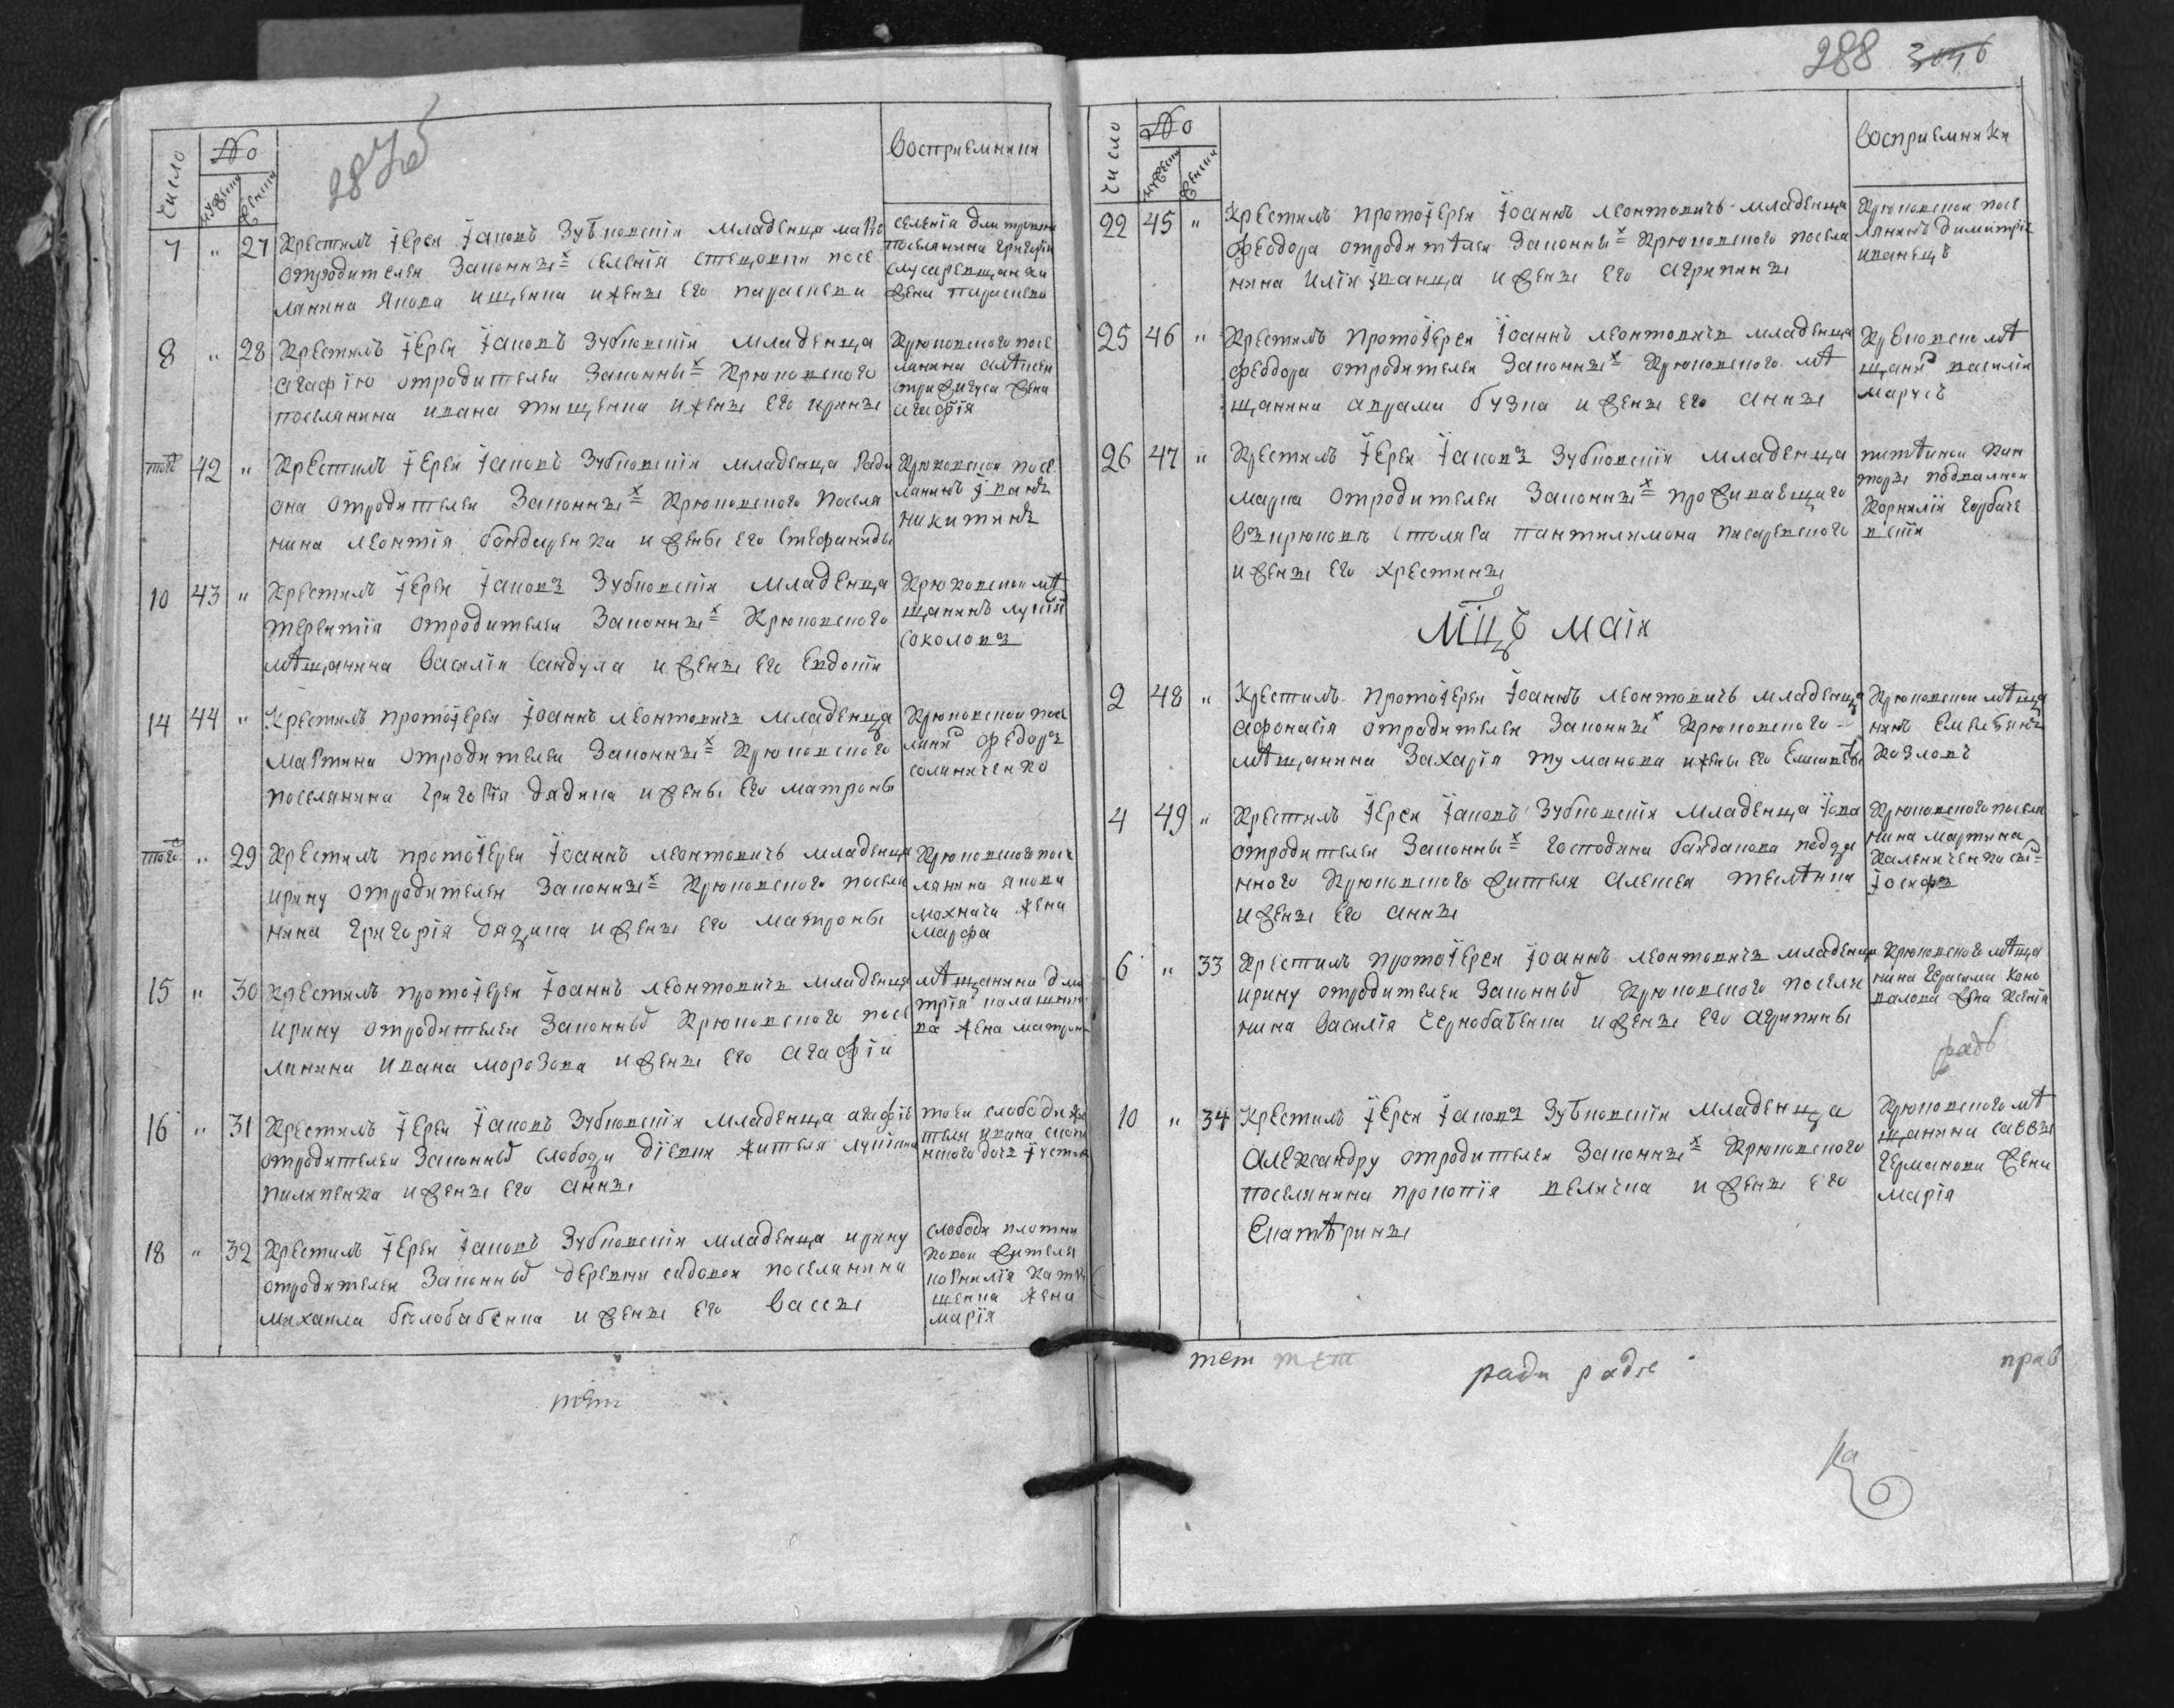 число
№
мужеска
женска
287об
Восприемники
7 " 27 Крестилъ Іерей Іаковъ Зубковскій младенца
отродителей Законныхъ селенія посе
лянина Якова ищенка и жены его параскеви
селенія дмитровки
поселянина Григорія
слюсаревщенка
жена параскева
8 " 28 Крестилъ Іерей Іаковъ Зубковскій младенца
агафію отродителей Законныхъ Крюковского
поселянина ивана тищенка и жены его ирины
Крюковского посе
лянина алѣксея
жена
агафія
тогоже 42 " Крестилъ Іерей Іаковъ Зубковскій младенца Роди
она отродителей Законныхъ Крюковского поселя
нина леонтія бондаренка и жены его стефаниды
Крюковской посе
лянинъ Іванъ
никитинъ
10 43 " Крестилъ Іерей Іаковъ Зубковскій младенца
терентія отродителей Законныхъ Крюковского
мѣщанина Василія сандула и жены его Евдокіи
Крюковской мѣ
щанинъ лукіянъ
соколовъ
14 44 " Крестилъ протоіерей Іоаннъ леонтовичъ младенца
мартина отродителей Законныхъ Крюковского
поселянина григорія дядика и жены его матроны
Крюковской посе
лянинъ федоръ
тогоже " 29 Крестилъ протоіерей Іоаннъ леонтовичъ младенца
ирину отродителей Законныхъ Крюковского поселя
нина григорія дядика и жены его матроны
Крюковского посе
лянина якова
мохнача жена
марфа
15 " 30 Крестилъ протоіерей Іоаннъ леонтовичъ младенца
ирину отродителей Законныхъ Крюковского посе
лянина ивана морозова и жены его агафіи
мѣщанина дми
трія калашнико
ва жена матрона
16 " 31 Крестилъ Іерей Іаковъ Зубковскій младенца агафію
отродителей Законныхъ слободы дѣевки жителя лукіяна
пилипенка и жены его анны
тоей слободы жи
теля ивана
дочь Іустина
18 " 32 Крестилъ Іерей Іаковъ Зубковскій младенца ирину
отродителей Законныхъ деревни садовой поселянина
михаила бѣлобабенка и жены его Вассы
слободы плотни
ковой жителя
корнилія
жена
марія
288
число
№
мужеска
женска
восприемники
22 45 " Крестилъ протоіерей Іоаннъ леонтовичъ младенца
феодора отродителей Законныхъ Крюковского поселя
нина иліи іванца и жены его агрипины
Крюковской посе
лянинъ димитрій
иванецъ
25 46 " Крестилъ протоіерей Іоаннъ леонтовичъ младенца
феодора отродителей Законныхъ Крюковского мѣ
щанина аврама бузка и жены его анны
мѣ
щанинъ василій
26 47 " Крестилъ Іерей Іаковъ Зубковскій младенца
марка отродителей Законныхъ проживаещаго
въ крюковѣ столяра пантилимона писаревского
и жены его христины
питѣйной кон
торы подвалной
Корнилій горбаче
вскій
мцъ маія
2 48 " Крестилъ протоіерей Іоаннъ леонтовичъ младенца
афонасія отродителей Законныхъ Крюковского
мѣщанина Захарія туманова и жены его
Крюковской мѣща
нинъ Емельянъ
Козловъ
4 49 " Крестилъ Іерей Іаковъ Зубковскій младенца Іова
отродителей Законныхъ господина байдакова подда
нного Крюковского жителя алексея
и жены его анны
Крюковского поселя
нина мартина
Калениченка сынъ
Іосифъ
6 " 33 Крестилъ протоіерей Іоаннъ леонтовичъ младенца
ирину отродителей Законныхъ Крюковского поселя
нина василія чернобабенка и жены его агрипины
Крюковского мѣща
нина герасима коно
валова жена ксенія
радъ
10 " 34 Крестилъ Іерей Іаковъ Зубковскій младенца
александру отродителей Законныхъ Крюковского
поселянина прокопія величка и жены его
Екатѣрины
Крюковского мѣ
щанина саввы
германова жена
марія
тет
тет тет
ради радѣ
прав
ка